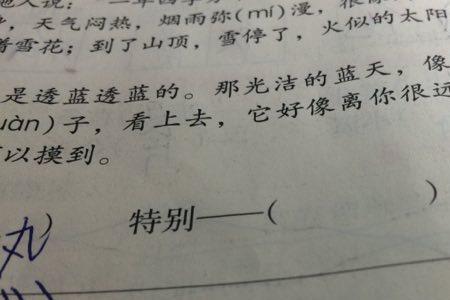 他人说：“一年四季
，天气闷热，烟雨弥(mí)漫，很
着雪花；到了山顶，雪停了，火似的太阳
是透蓝透蓝的。那光洁的蓝天，像
uàn)子，看上去，它好像离你很远
可以摸到。
丸) 特别——( )